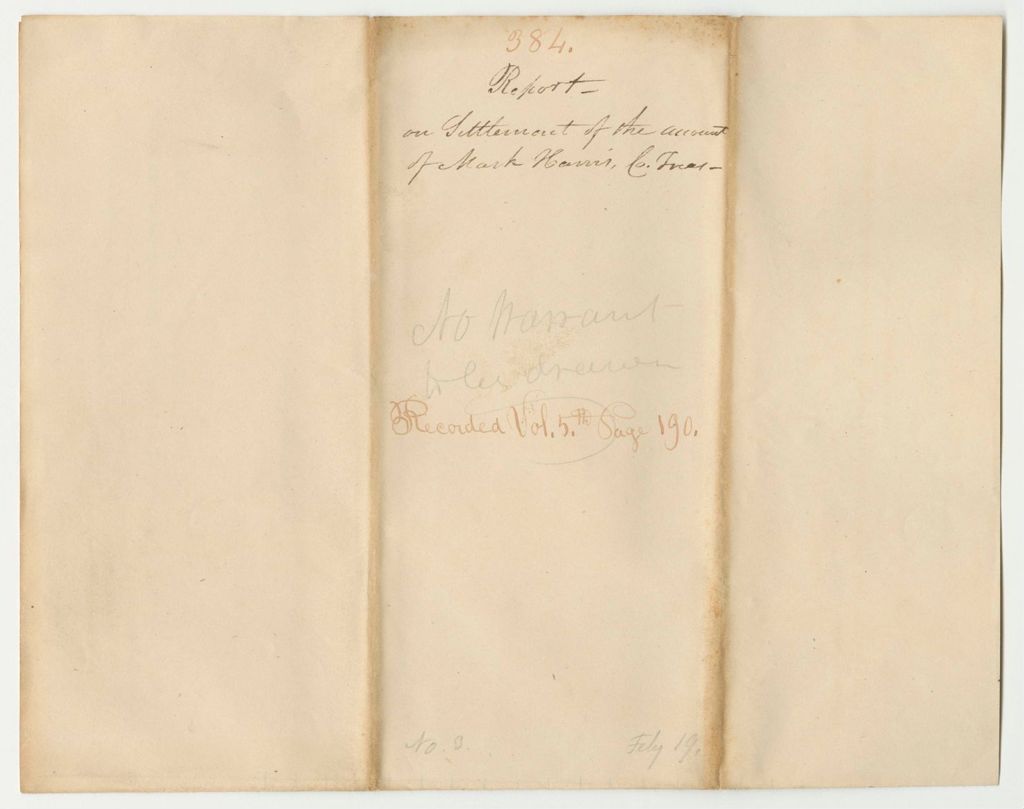 384.
Report -
on Settlement of the account
of Mark Harris, Co. Treas -
No Warrant
to be drawn
Recorded Vol. 5.th Page 190.
No. 3.
Feby 19.